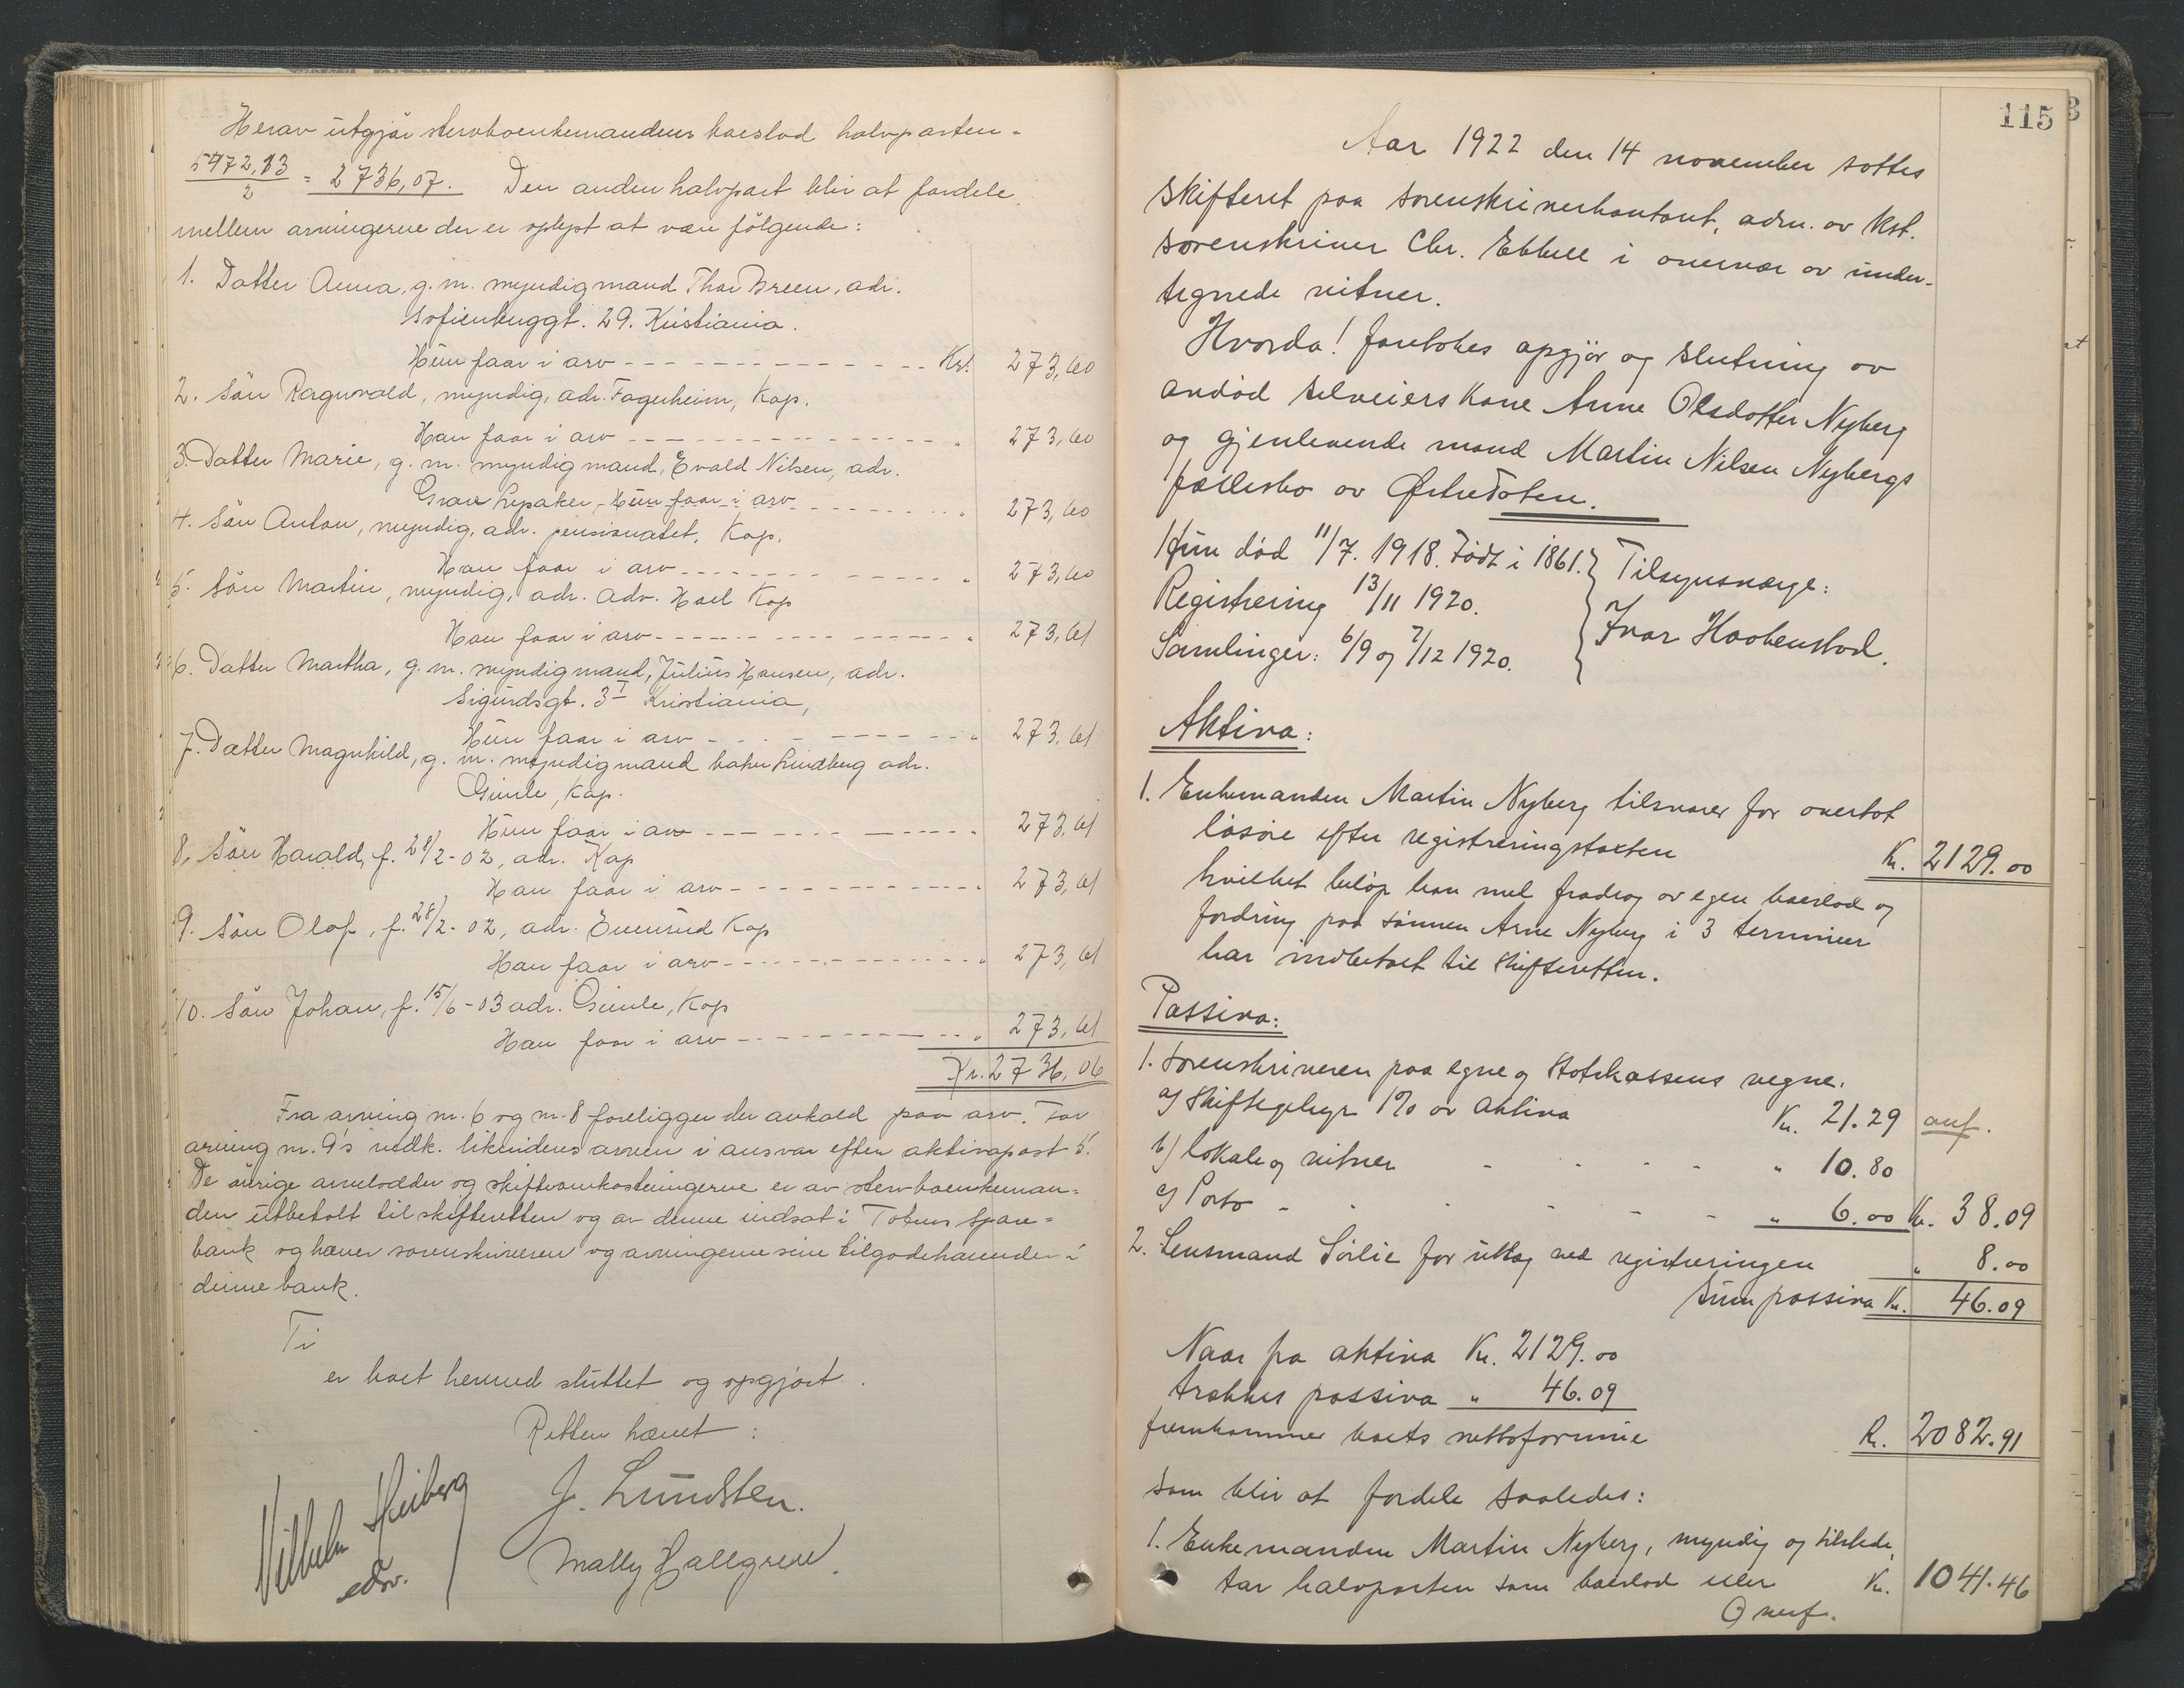 Herav utgjør stervboenkemandens boeslod halvparten =
5472,13
2
= 2736,07. Den anden halvpart blir at fordele
mellem arvingerne der er oplyst at være følgende:
1. Datter Anna, g. m. myndig mand Thor Breen, adr.
Sofienbuggt. 29. Kristiania.
Hun faar i arv - - - Kr. 273,60
2. Søn Ragnvald, myndig, adr. Fagerheim, Kap.
Han faar i arv - - - " 273,60
3. Datter Marie, g. m. myndig mand, Evald Nilsen, adr.
Grav Lysaker, - Hun faar i arv - - - " 273,60
4. Søn Anton, myndig, adr. pensionatet, Kap.
Han faar i arv - - - " 273,60
5. Søn Martin, myndig, adr. Adv. Hoel Kap
Han faar i arv - - - " 273,61
6. Datter Martha, g. m. myndig mand, Julius Hansen, adr.
Sigurdsgt. 3 I Kristiania,
Hun faar i arv - - - " 273,61
7. Datter Magnhild, g. m. myndig mand baker Lindberg adr.
Gimle, Kap.
Hun faar i arv - - - " 273,61
8. Søn Harald, f. 28/2-02, adr. Kap
Han faar i arv - - - " 273,61
9. Søn Olaf, f. 28/2-02, adr. Evensrud Kap
Han faar i arv - - - " 273,61
10. Søn Johan, f. 15/6-03 adr. Gimle, Kap
Han faar i arv - - - " 273,61
Kr. 2736,06
Fra arving nr. 6 og nr. 8 foreligger der avkald paa arv. For
arving nr. 9's vedk. likvideres arven i ansvar efter aktivapost 5.
De øvrige arvelodder og skifteomkostningerne er av stervboenkeman=
den utbetalt til skifteretten og av denne indsat i Totens Spare=
bank og hæver sorenskriveren og arvingerne sine tilgodehavender i
denne bank.
Ti
er boet herved sluttet og opgjort.
Retten hævet:
Vilhelm Heiberg
edsv.
J. Lundsten.
Mally Hallgren.
115
Aar 1922 den 14 november sattes
skifteret paa sorenskriverkontoret, adm. av kst.
sorenskriver Chr. Ebbell i overvær av under-
tegnede vitner.
Hvorda! foretokes opgjør og slutning av
avdød selveierskone Anne Olsdatter Nyberg
og gjenlevende mand Martin Nilsen Nybergs
fællesbo av Østre Toten.
Hun død 11/7. 1918. Født i 1861. } Tilsynsværge:
Registrering 13/11 1920.
Ivar Haakenstad.
Samlinger: 6/9 og 7/12 1920.
Aktiva:
1. Enkemanden Martin Nyberg tilsvarer for overtat
løsøre efter registreringstaksten Kr. 2129.00
hvilket beløp han med fradrag av egen boeslod og
fordring paa sønnen Arne Nyberg i 3 terminer
har indbetalt til skifteretten.
Passiva:
1. Sorenskriveren paa egne og Statskassens vegne:
a) Skiftegebyr 1% av aktiva Kr. 21.29 anf.
b) Lokale og vitner - - - " 10.80
c) Porto - - - " 6.00 Kr. 38.09
2. Lensmand Sørlie for utlæg ved registreringen " 8.00
Sum passiva Kr. 46.09
Naar fra aktiva Kr. 2129.00
trækkes passiva " 46.09
fremkommer boets nettoformue Kr. 2082.91
som blir at fordele saaledes:
1. Enkemanden Martin Nyberg, myndig og tilstede,
tar halvparten som boeslod eller Kr. 1041.46